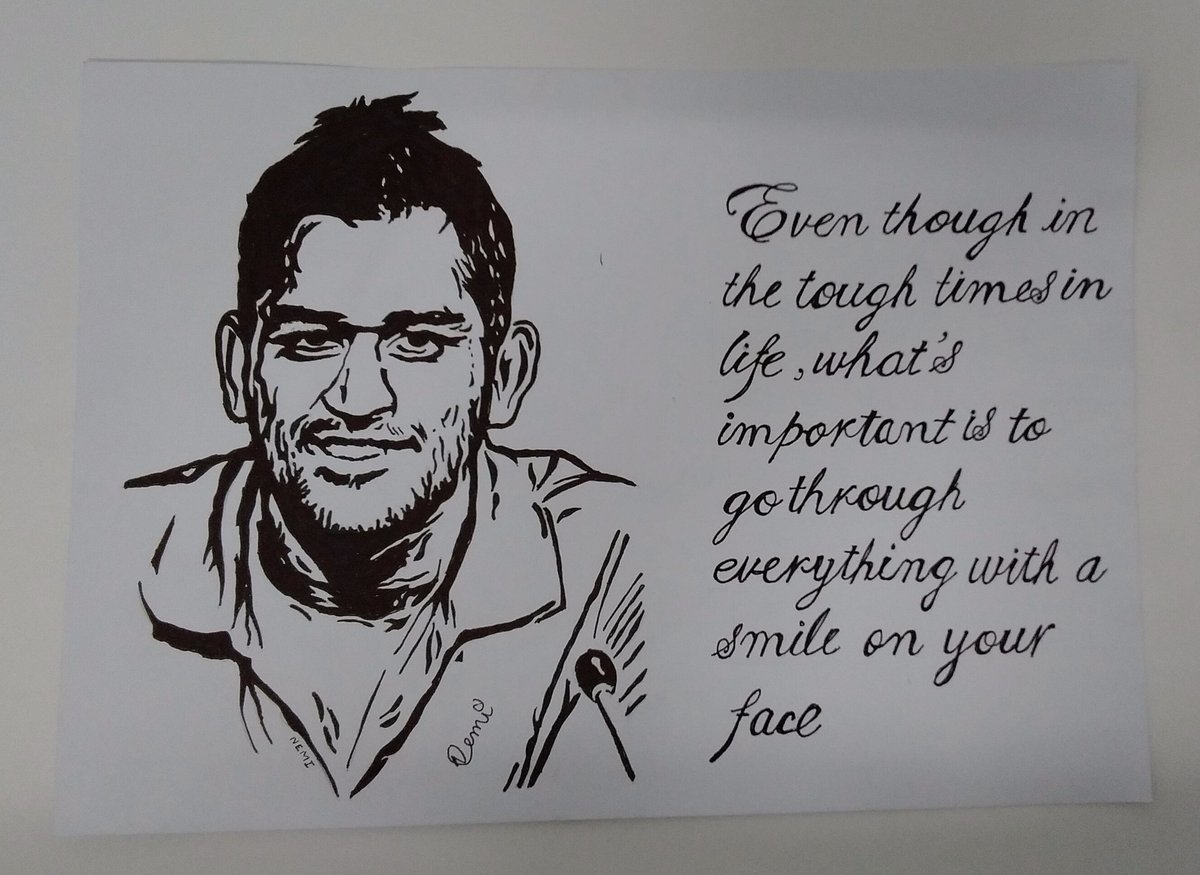 Even though in
the tough times in
life, what's
important is to
go through
everything with a
smile on your
face
NEMI
Nemi